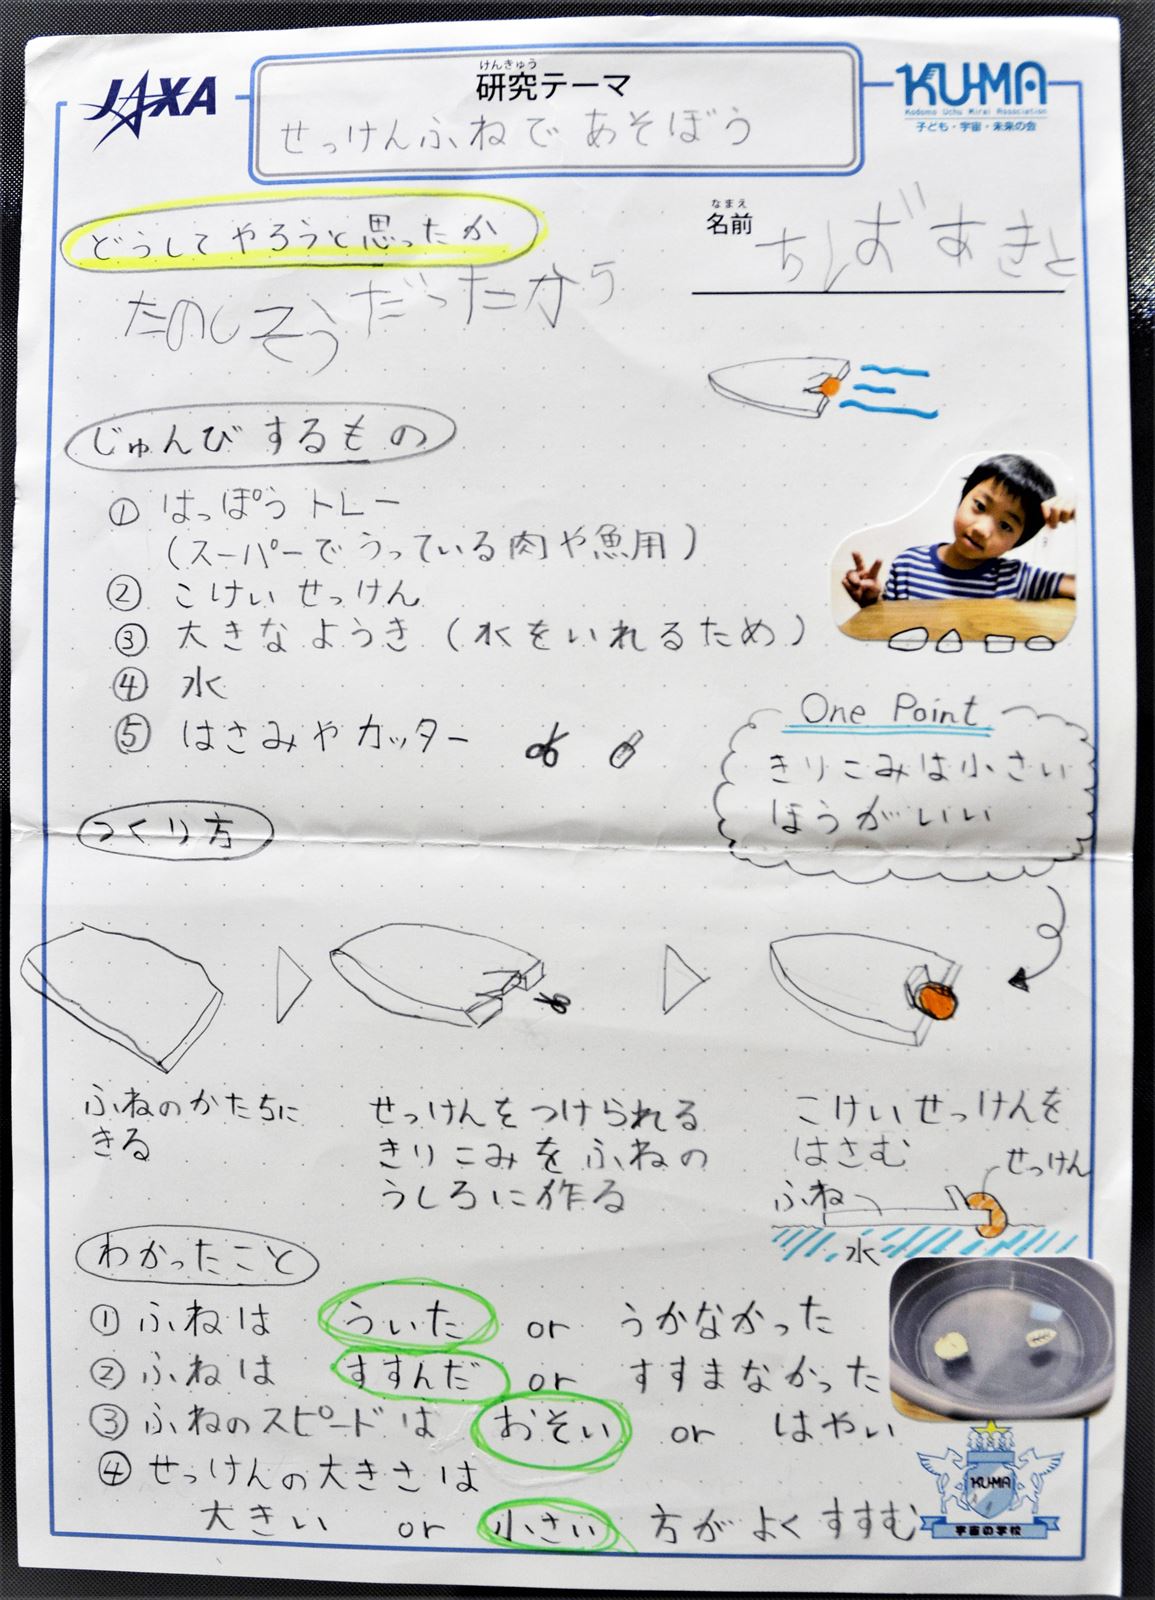 JAXA
けんきゅう
研究テーマ
せっけんふねであそぼう
KU-MA
Kodomo Uchu Mirai Association
子ども・宇宙・未来の会
どうしてやろうと思ったか
なまえ
名前
たのしそうだったから
じゅんびするもの
① はっぽうトレー
(スーパーでうっている肉や魚用)
② こけいせっけん
③ 大きなようき(水をいれるため)
④ 水
⑤ はさみやカッター
One Point
きりこみは小さい
ほうがいい
つくり方
ふねのかたちに
きる
せっけんをつけられる
きりこみをふねの
うしろに作る
こけいせっけんを
はさむ
せっけん
ふね
水
わかったこと
① ふねは ういた or うかなかった
② ふねは すすんだ or すすまなかった
③ ふねのスピードは おそい or はやい
④ せっけんの大きさは
大きい or 小さい 方がよくすすむ
KU-MA
宇宙の学校